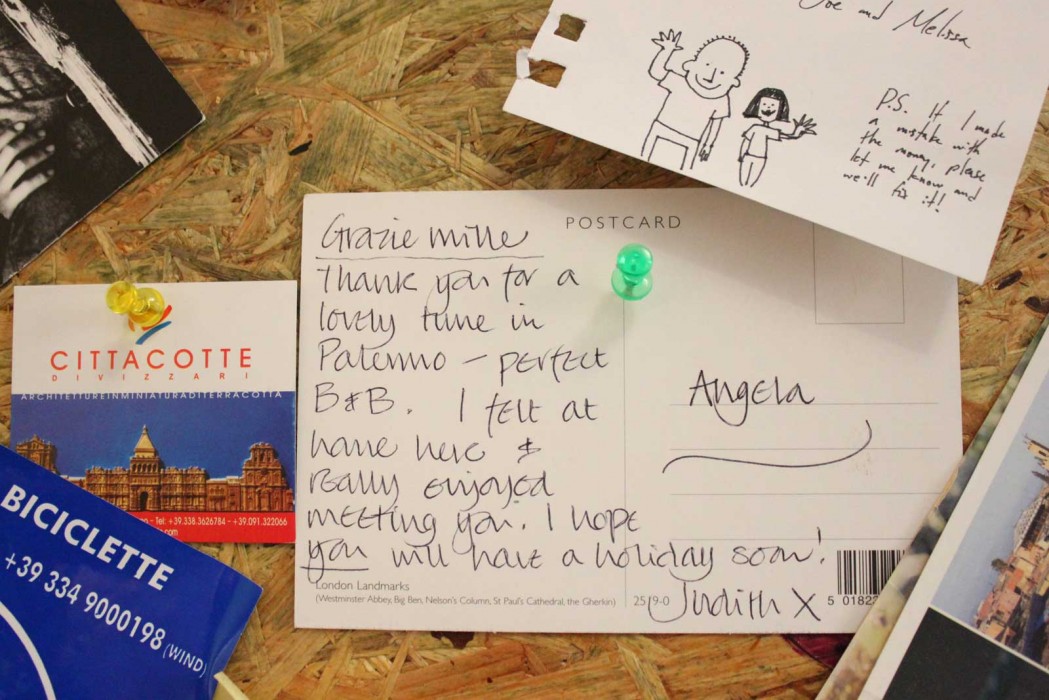 Joe and Melissa
P.S. If I made
a mistake with
the money, please
let me know and
we'll fix it!
POSTCARD
Grazie mille
Thank you for a
lovely time in
Palermo – perfect
B&B. I felt at
home here &
really enjoyed
meeting you. I hope
you will have a holiday soon!
Judith X
Angela
London Landmarks
(Westminster Abbey, Big Ben, Nelson's Column, St Paul's Cathedral, the Gherkin)
25/9-0
5 01822
CITTACOTTE
DIVIZZARI
ARCHITETTUREINMINIATURADITERRACOTTA
- Tel: +39.338.3626784 - +39.091.322066
.com
BICICLETTE
+39 334 9000198 (WIND)